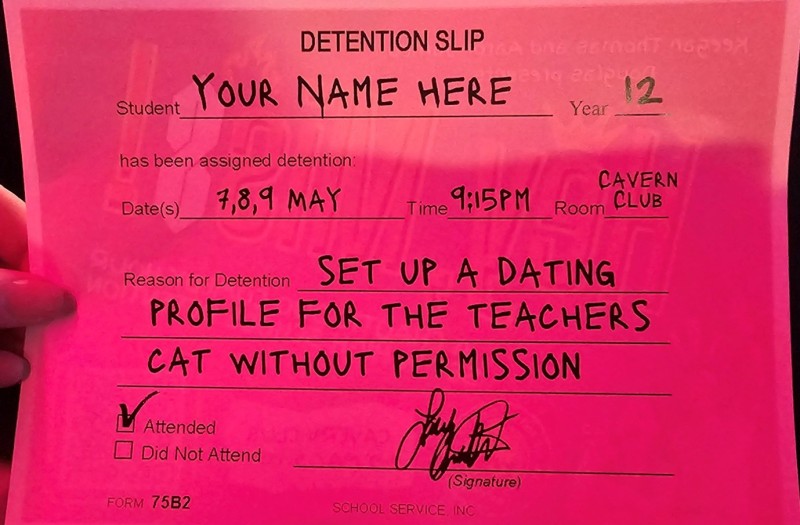 DETENTION SLIP
Student YOUR NAME HERE Year 12
has been assigned detention:
Date(s) 7,8,9 MAY Time 9:15PM Room CAVERN CLUB
Reason for Detention SET UP A DATING
PROFILE FOR THE TEACHERS
CAT WITHOUT PERMISSION
Attended
Did Not Attend
(Signature)
FORM 75B2
SCHOOL SERVICE INC.